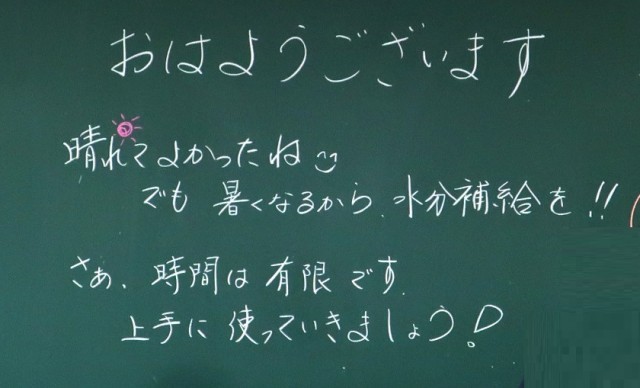 おはようございます
晴れてよかったね
でも 暑くなるから、水分補給を!!
さぁ、時間は有限です。
上手に使っていきましょう!